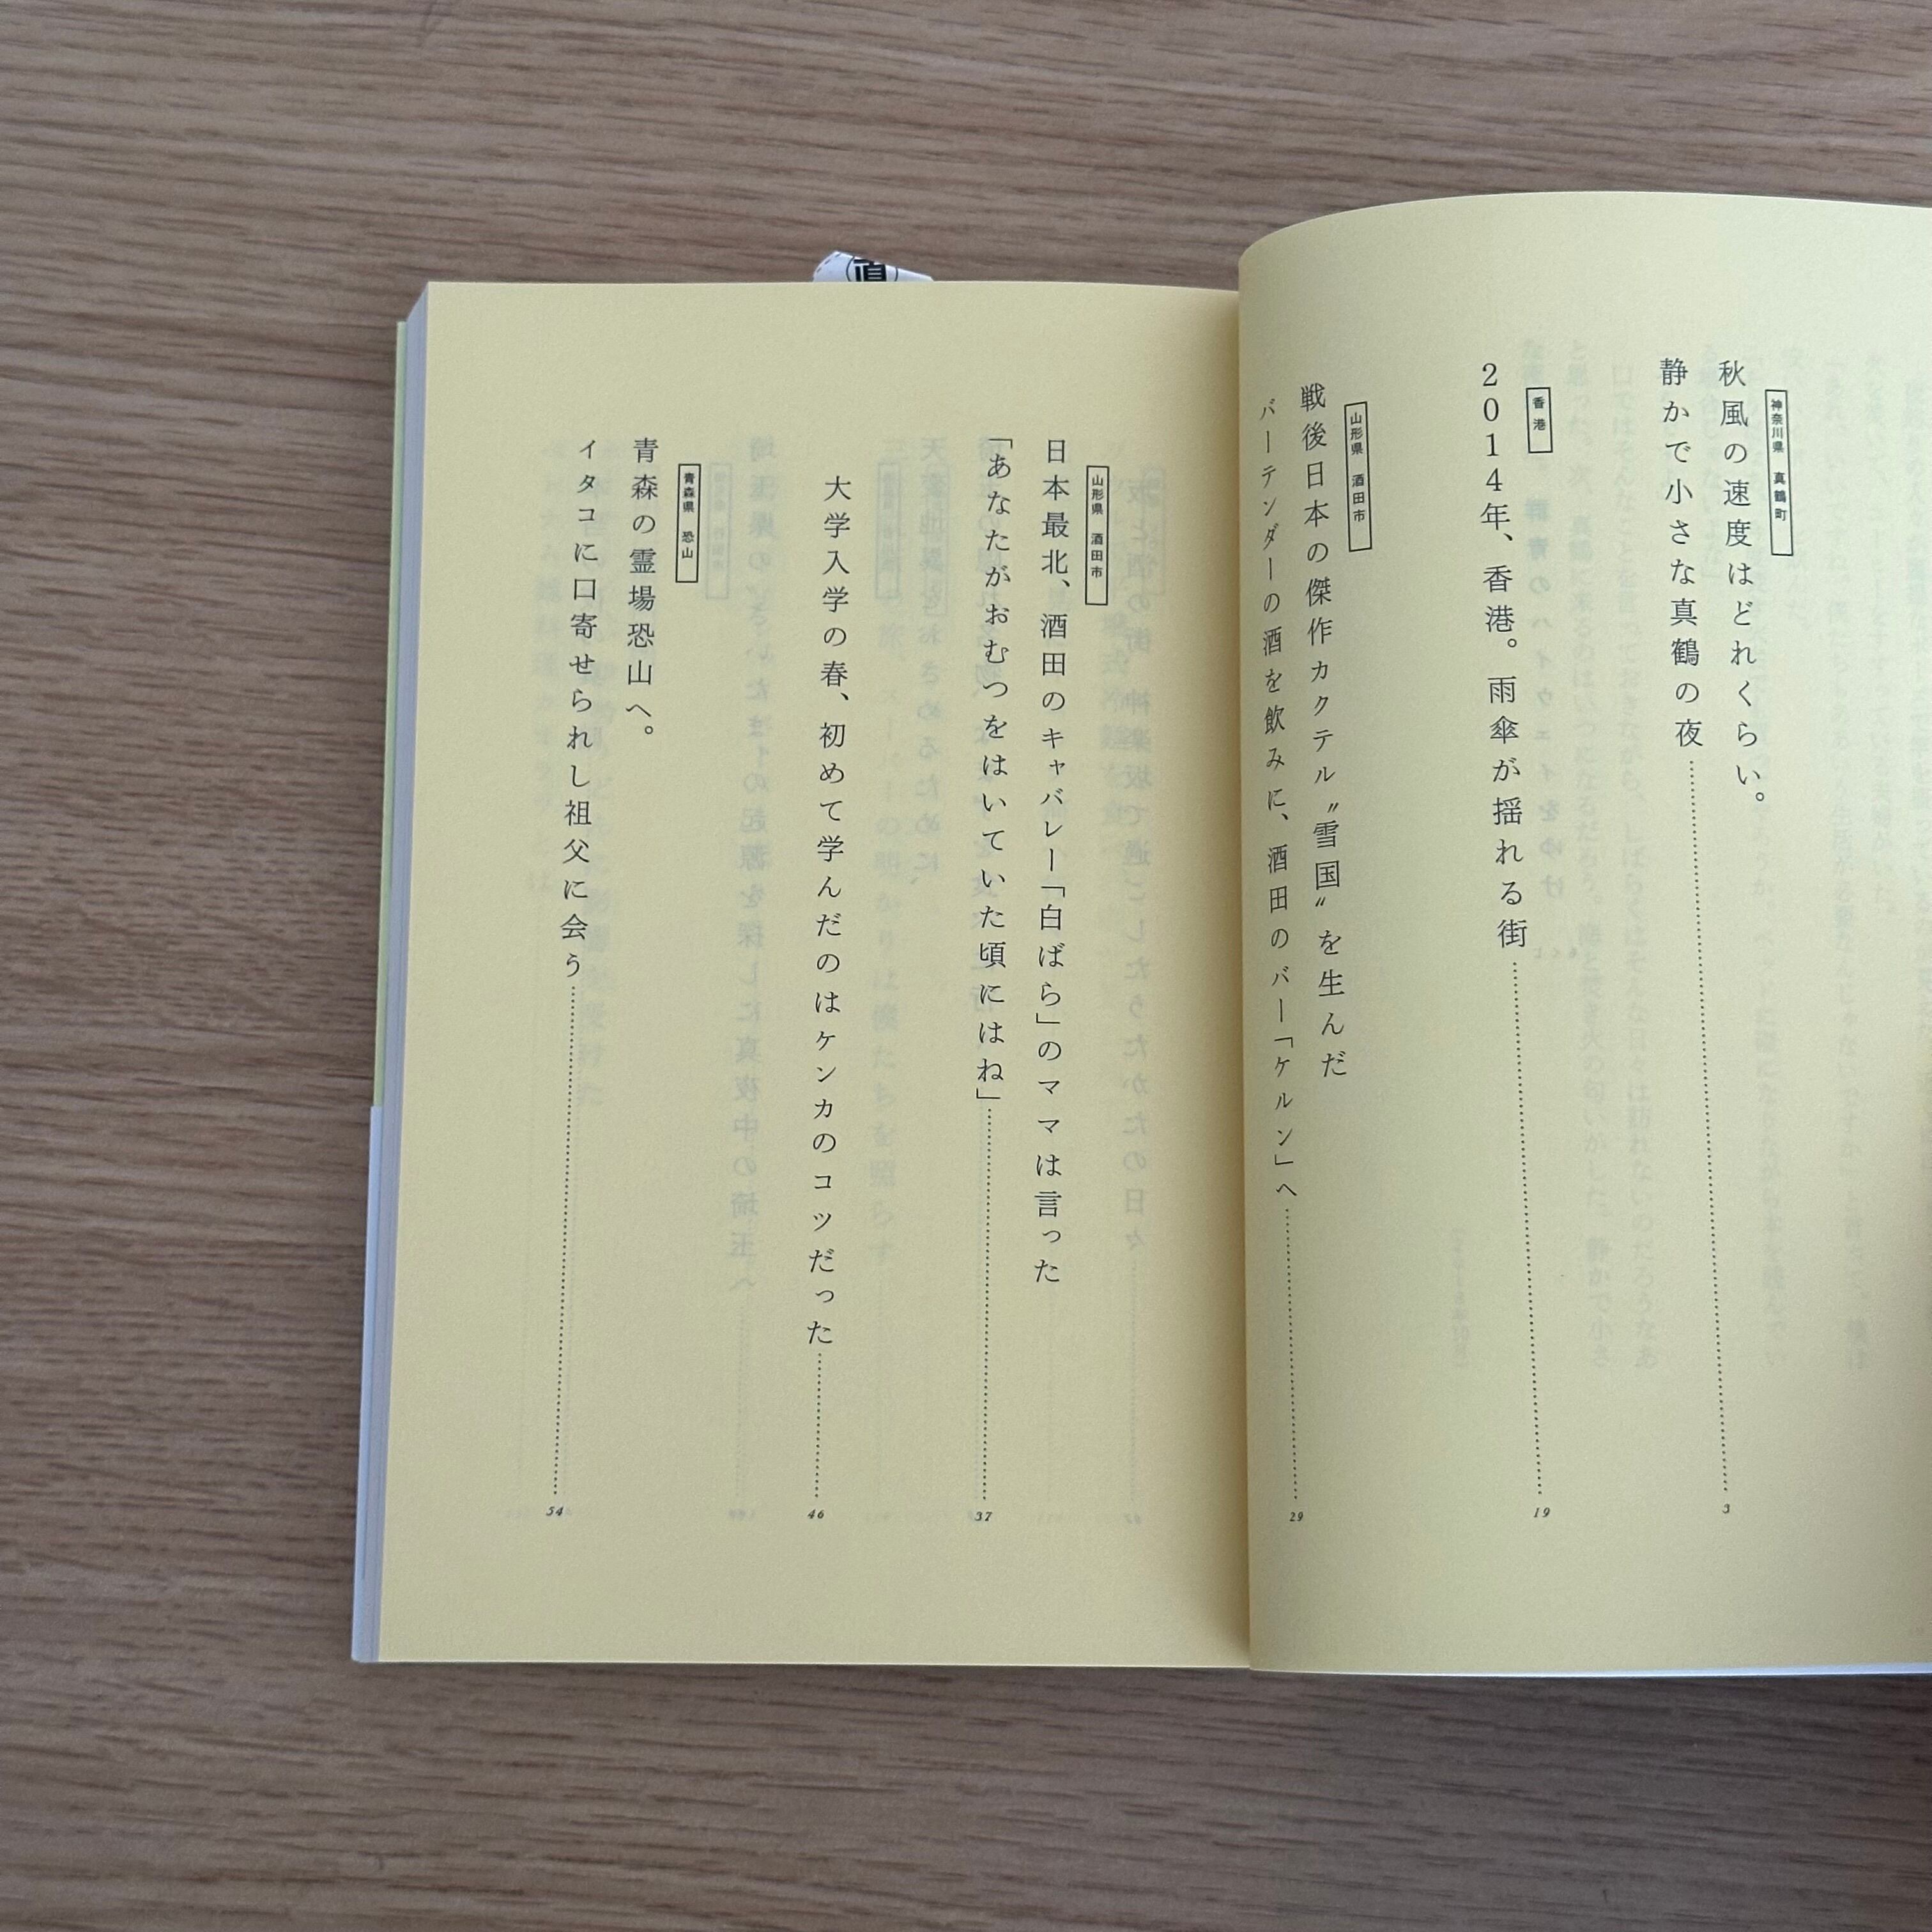 神奈川県 真鶴町
秋風の速度はどれくらい。
静かで小さな真鶴の夜
3
香港
2014年、香港。雨傘が揺れる街
19
山形県 酒田市
戦後日本の傑作カクテル〝雪国〟を生んだ
バーテンダーの酒を飲みに、酒田のバー「ケルン」へ
29
山形県 酒田市
日本最北、酒田のキャバレー「白ばら」のママは言った
「あなたがおむつをはいていた頃にはね」
37
大学入学の春、初めて学んだのはケンカのコツだった
46
青森県 恐山
青森の霊場恐山へ。
イタコに口寄せられし祖父に会う
54